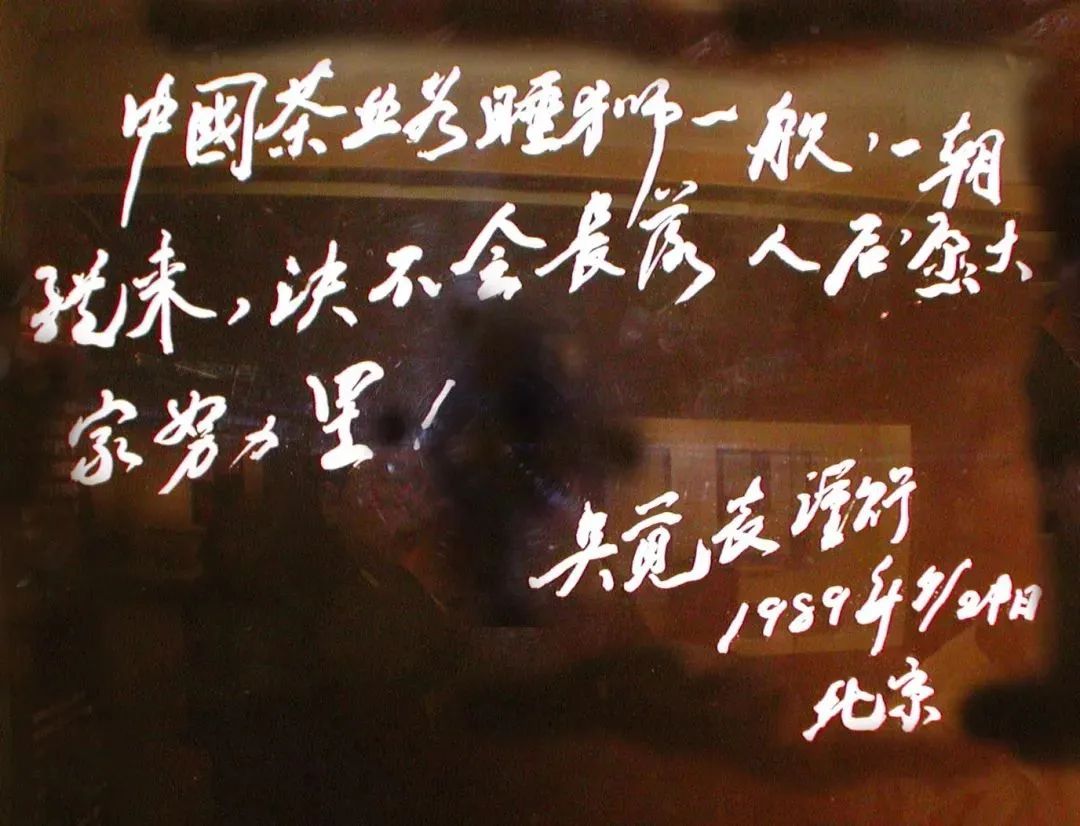 中國茶业若睡狮一般,一朝
醒来,决不会长落人后,愿大
家努力罢!
吴觉农
1989年
北京